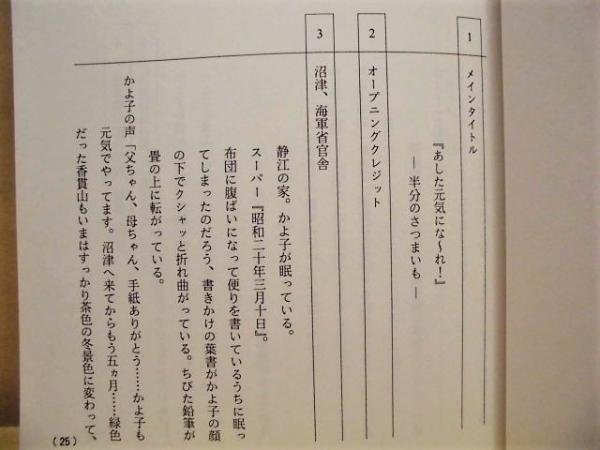 1 メインタイトル
『あした元気にな〜れ！』
― 半分のさつまいも ―
2 オープニングクレジット
3 沼津、海軍省官舎
静江の家。かよ子が眠っている。
スーパー『昭和二十年三月十日』。
布団に腹ばいになって便りを書いているうちに眠っ
てしまったのだろう、書きかけの葉書がかよ子の顔
の下でクシャッと折れ曲がっている。ちびた鉛筆が
畳の上に転がっている。
かよ子の声「父ちゃん、母ちゃん、手紙ありがとう……かよ子も
元気でやってます。沼津へ来てからもう五ヵ月……緑色
だった香貫山もいまはすっかり茶色の冬景色に変わって、
(25)